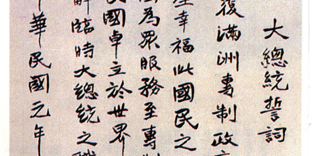 大總統誓詞
滿洲專制政
幸福此國民之
為眾服務至專制
國卓立於世界
解臨時大總統之職
華民國元年